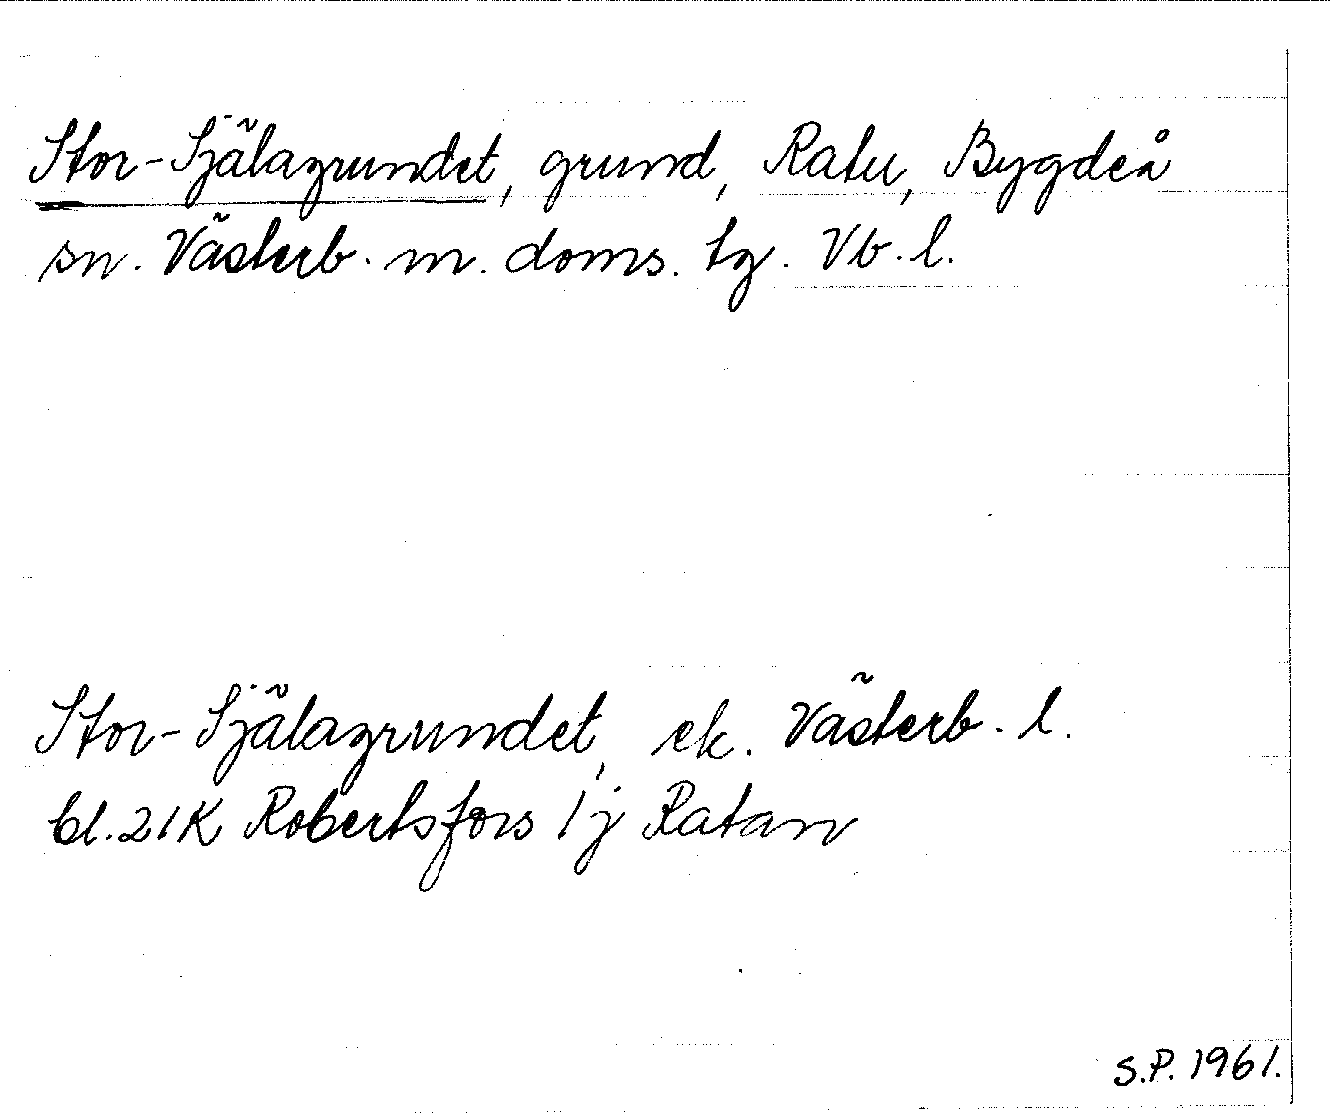 Stor-Själagrundet, grund, Ratu, Bygdeå
sn. Västerb. m. doms. tg. Vb. l.
Stor-Själagrundet, ek. Västerb. l.
bl. 21K Robertsfors 1j Ratan
S.P. 1961.